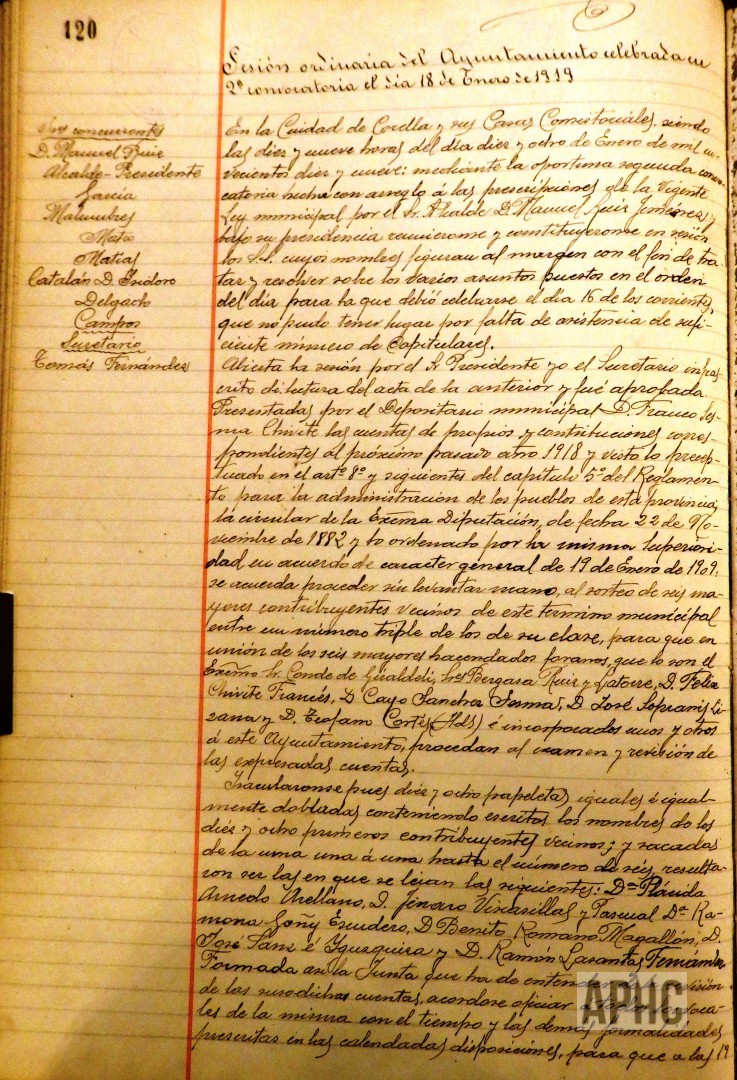 120
Sesión ordinaria del Ayuntamiento celebrada en
2ª convocatoria el día 18 de Enero de 1919
Sres concurrentes
D. Manuel Ruiz
Alcalde-Presidente
García
Malumbres
Mata
Matias
Catalán D. Isidoro
Delgado
Campos
Secretario
Tomás Fernández
En la Ciudad de Corella y sus Casas Consistoriales, siendo
las diez y nueve horas del día diez y ocho de Enero de mil no-
vecientos diez y nueve: mediante la oportuna segunda convo-
catoria hecha con arreglo á las prescripciones de la Vigente
Ley municipal por el Sr. Alcalde D. Manuel Ruiz Jiménez; y
bajo su presidencia reunieronse y constituyeronse en sesión
los S.S. cuyos nombres figuran al margen con el fin de tra-
tar y resolver sobre los varios asuntos puestos en el orden
del día para la que debió celebrarse el día 16 de los corrientes,
que no pudo tener lugar por falta de asistencia de sufi-
ciente número de Capitulares.
Abierta la sesión por el Sr Presidente yo el Secretario infras-
crito di lectura del acta de la anterior y fué aprobada
Presentadas por el Depositario municipal D. Franco Ses-
ma Chivite las cuentas de propios y contribuciones corres-
pondientes al próximo pasado año 1918 y visto lo precep-
tuado en el artº 8º y siguientes del capítulo 5º del Reglamen-
to para la administracion de los pueblos de esta provincia,
la circular de la Excma Diputación, de fecha 22 de No-
viembre de 1882 y lo ordenado por la misma Superiori-
dad en acuerdo de caracter general de 19 de Enero de 1909;
se acuerda proceder sin levantar mano, al sorteo de seis ma-
yores contribuyentes vecinos de este termino municipal
entre un número triple de los de su clase, para que en
unión de los seis mayores hacendados foranos, que lo son el
Excmo Sr. Conde de Güaldeli, Sres Bergasa Ruiz y Latorre, D. Felix
Chivite Francés, D Cayo Sanchez Sesma, D José Sopranis Li-
zana y D. Teofano Cortés (Hds) é incorporados unos y otros
á este Ayuntamiento, procedan al examen y revisión de
las expresadas cuentas.
Insacularonse pues diez y ocho papeletas iguales é igual-
mente dobladas conteniendo escritos los nombres de los
diez y ocho primeros contribuyentes vecinos; y sacadas
de la urna una á una hasta el número de seis, resulta-
ron ser las en que se leían las siguientes: Dª Plácida
Arnedo Arellano, D. Jenaro Virasillas y Pascual Dª Ra-
mona Goñy Escudero, D Benito Romano Magallón, D.
José Sanz é Yzurquiza y D. Ramón Lasantas Fernández
Formada asi la Junta que ha de entender revisión
de las susodichas cuentas, acordose oficiar voca-
les de la misma con el tiempo y las demas formalidades
prescritas en las calendadas disposiciones, para que a las 19
APHC